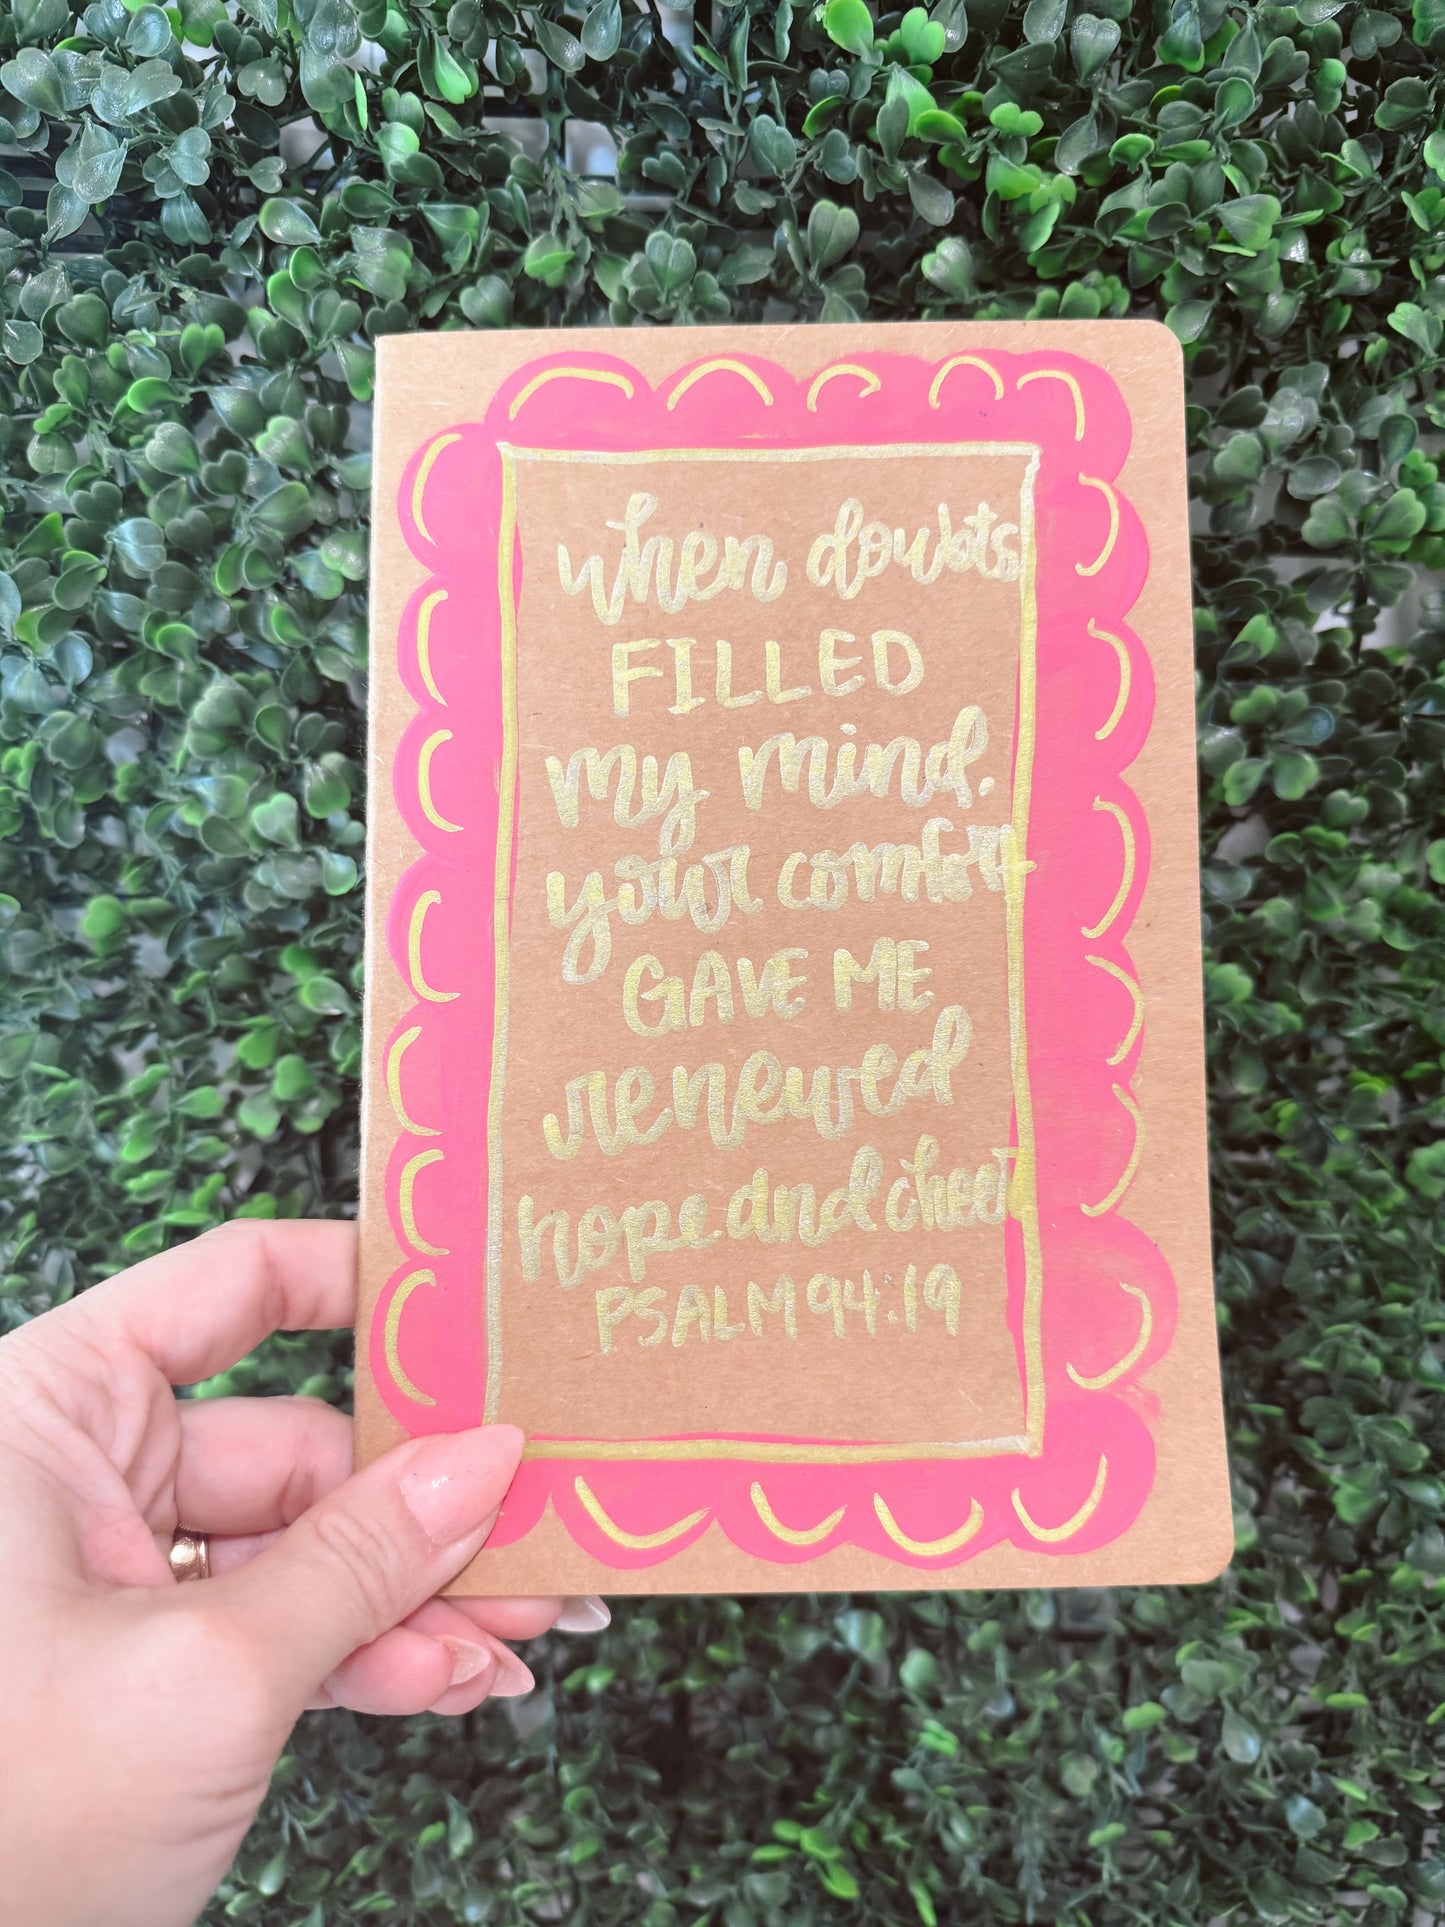 when doubts
FILLED
my mind.
your comfort
GAVE ME
renewed
hope and cheer
PSALM 94:19